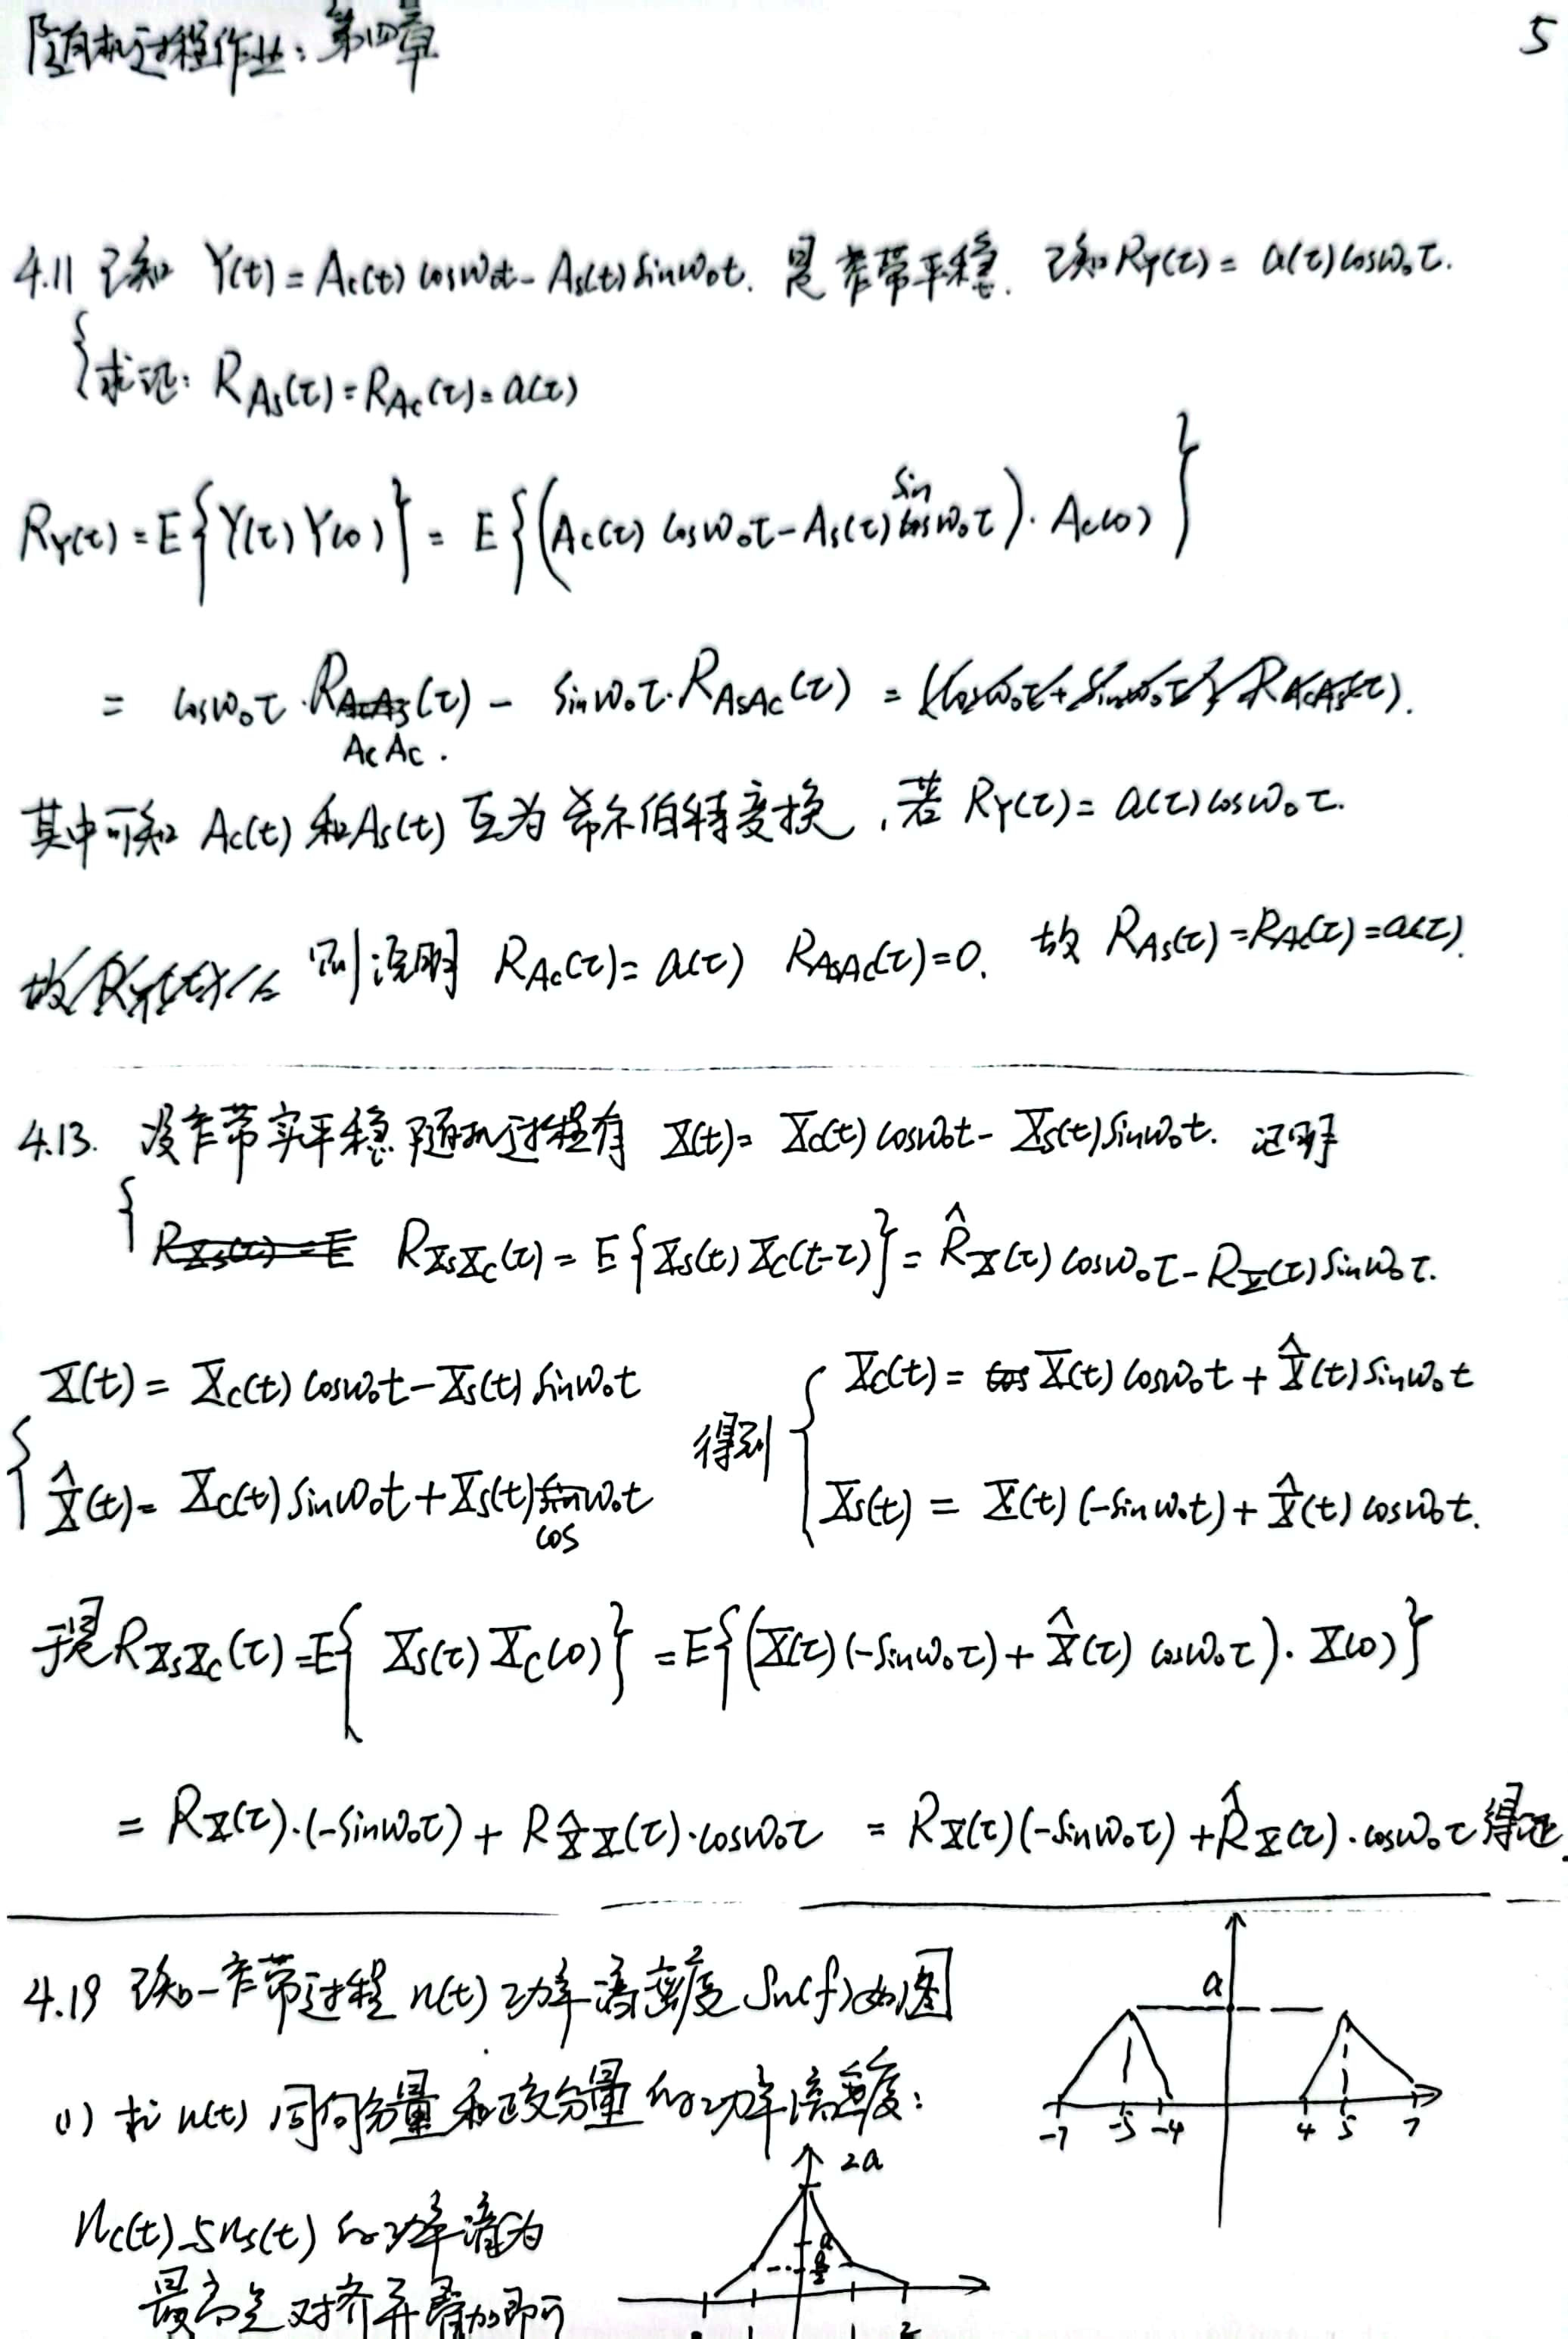 随机过程作业：第四章
5
4.11 已知 Y(t) = Ac(t) cosω0t - As(t) sinω0t. 是窄带平稳. 已知 RY(τ) = a(τ) cosω0τ.
求证: RAs(τ) = RAc(τ) = a(τ)
RY(τ) = E{Y(τ) Y(0)} = E{(Ac(τ) cosω0τ - As(τ) sinω0τ) · Ac(0)}
= cosω0τ · RAcAc(τ) - sinω0τ · RAsAc(τ) = (cosω0τ + sinω0τ) RAcAs(τ).
其中可知 Ac(t) 和 As(t) 互为希尔伯特变换, 若 RY(τ) = a(τ) cosω0τ.
则说明 RAc(τ) = a(τ) RAsAc(τ) = 0. 故 RAs(τ) = RAc(τ) = a(τ).
4.13. 设窄带实平稳随机过程有 X(t) = Xc(t) cosω0t - Xs(t) sinω0t. 证明
RXs(τ) = E RXsXc(τ) = E{Xs(t) Xc(t-τ)} = R̂X(τ) cosω0τ - RX(τ) sinω0τ.
X(t) = Xc(t) cosω0t - Xs(t) sinω0t
X̂(t) = Xc(t) sinω0t + Xs(t) cosω0t
得到
Xc(t) = X(t) cosω0t + X̂(t) sinω0t
Xs(t) = X(t) (-sinω0t) + X̂(t) cosω0t.
于是 RXsXc(τ) = E{Xs(τ) Xc(0)} = E{(X(τ) (-sinω0τ) + X̂(τ) cosω0τ) · X(0)}
= RX(τ)·(-sinω0τ) + RX̂X(τ)·cosω0τ = RX(τ)(-sinω0τ) + R̂X(τ)·cosω0τ 得证.
4.19 已知一窄带过程 n(t) 功率谱密度 Sn(f) 如图
a
-7 -5 -4 4 5 7
(1) 求 n(t) 同向分量和正交分量的功率谱密度:
2a
nc(t) 与 ns(t) 的功率谱为
a
a/2
最高点对齐并叠加即可
2